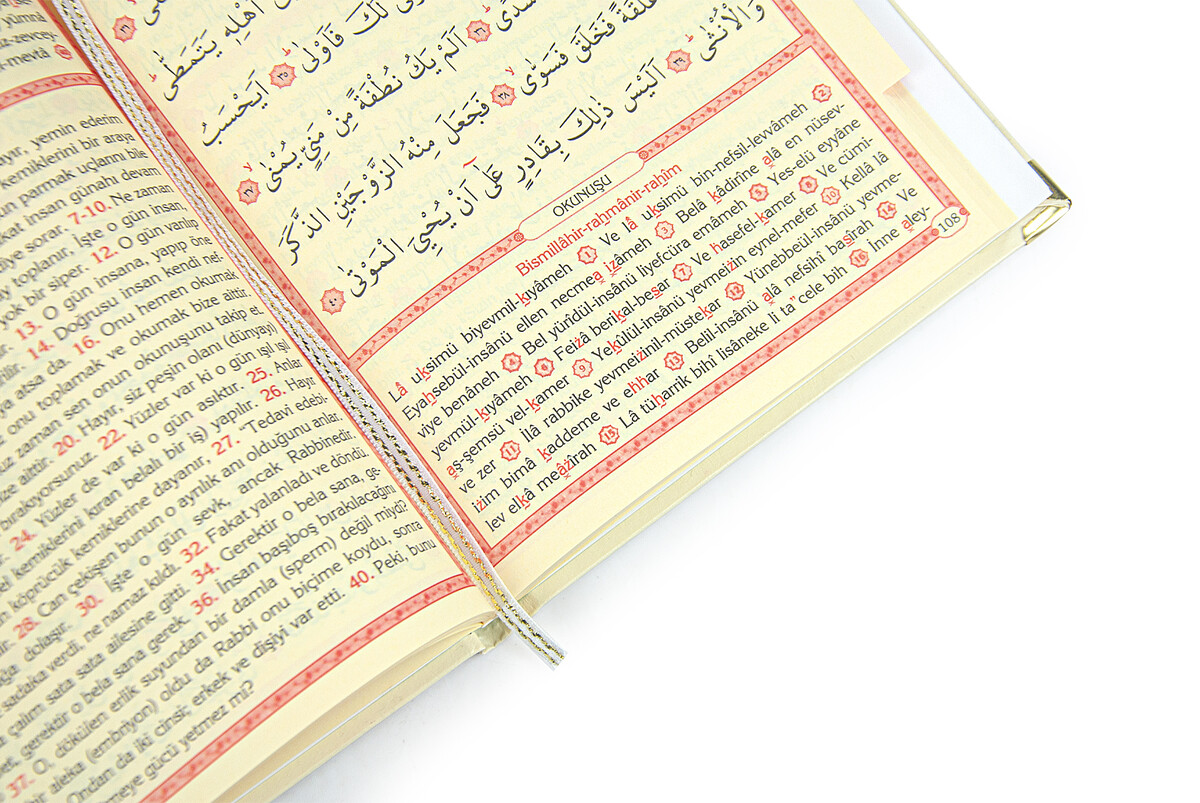 yümna
z-zevcey-
-mevtâ
ayır, yemin ederim
kemiklerini bir araya
parmak uçlarını bile
insan günahı devam
diye sorar. 7-10. Ne zaman
toplanır, İşte o gün insan,
yok bir siper. 12. O gün varılıp
13. O gün insana, yapıp öne
14. Doğrusu insan kendi nef-
atsa da. 16. Onu hemen okumak
onu toplamak ve okumak bize aittir.
zaman sen onun okunuşunu takip et.
aittir. 20. Hayır, siz peşin olanı (dünyayı)
bırakıyorsunuz. 22. Yüzler var ki o gün ışıl ışıl
24. Yüzler de var ki o gün asıktır. 25. Anlar
kemiklerini kıran belalı bir iş) yapılır. 26. Hayır
köprücük kemiklerine dayanır, 27. "Tedavi edebi-
28. Can çekişen bunun o ayrılık anı olduğunu anlar.
dolaşır. 30. İşte o gün sevk, ancak Rabbinedir.
sadaka verdi, ne namaz kıldı. 32. Fakat yalanladı ve döndü.
çalım sata sata ailesine gitti. 34. Gerektir o bela sana, ge-
gerektir o bela sana gerek. 36. İnsan başıboş bırakılacağını
37. O, dökülen erlik suyundan bir damla (sperm) değil miydi?
bir aleka (embriyon) oldu da Rabbi onu biçime koydu, sonra
Ondan da iki cinsi; erkek ve dişiyi var etti. 40. Peki, bunu
meye gücü yetmez mi?
اَهْلِهِ يَتَمَطّٰى
لَكَ فَاَوْلٰى ﴿٣٥﴾ اَيَحْسَبُ
سُدًى ﴿٣٦﴾ اَلَمْ يَكُ نُطْفَةً مِنْ مَنِيٍّ يُمْنٰى ﴿٣٧﴾
عَلَقَةً فَخَلَقَ فَسَوّٰى ﴿٣٨﴾ فَجَعَلَ مِنْهُ الزَّوْجَيْنِ الذَّكَرَ
وَالْاُنْثٰى ﴿٣٩﴾ اَلَيْسَ ذٰلِكَ بِقَادِرٍ عَلٰٓى اَنْ يُحْيِيَ الْمَوْتٰى ﴿٤٠﴾
OKUNUŞU
Bismillâhir-rahmânir-rahîm
Lâ uksimü biyevmil-kıyâmeh 1 Ve lâ uksimü bin-nefsil-levvâmeh 2
Eyahsebül-insânü ellen necmea izâmeh 3 Belâ kâdirîne alâ en nüsev-
viye benâneh 4 Bel yürîdül-insânü liyefcüra emâmeh 5 Yes-elü eyyâne
yevmül-kıyâmeh 6 Feizâ berikal-besar 7 Ve hasefel-kamer 8 Ve cümi-
aş-şemsü vel-kamer 9 Yekûlül-insânü yevmeizin eynel-mefer 10 Kellâ lâ
ve zer 11 İlâ rabbike yevmeizinil-müstekar 12 Yünebbeül-insânü yevme-
izim bimâ kaddeme ve ehhar 13 Belil-insânü alâ nefsihî basîrah 14 Ve
lev elkâ meâzîrah 15 Lâ tüharrik bihî lisâneke li ta"cele bih 16 İnne aley-
108